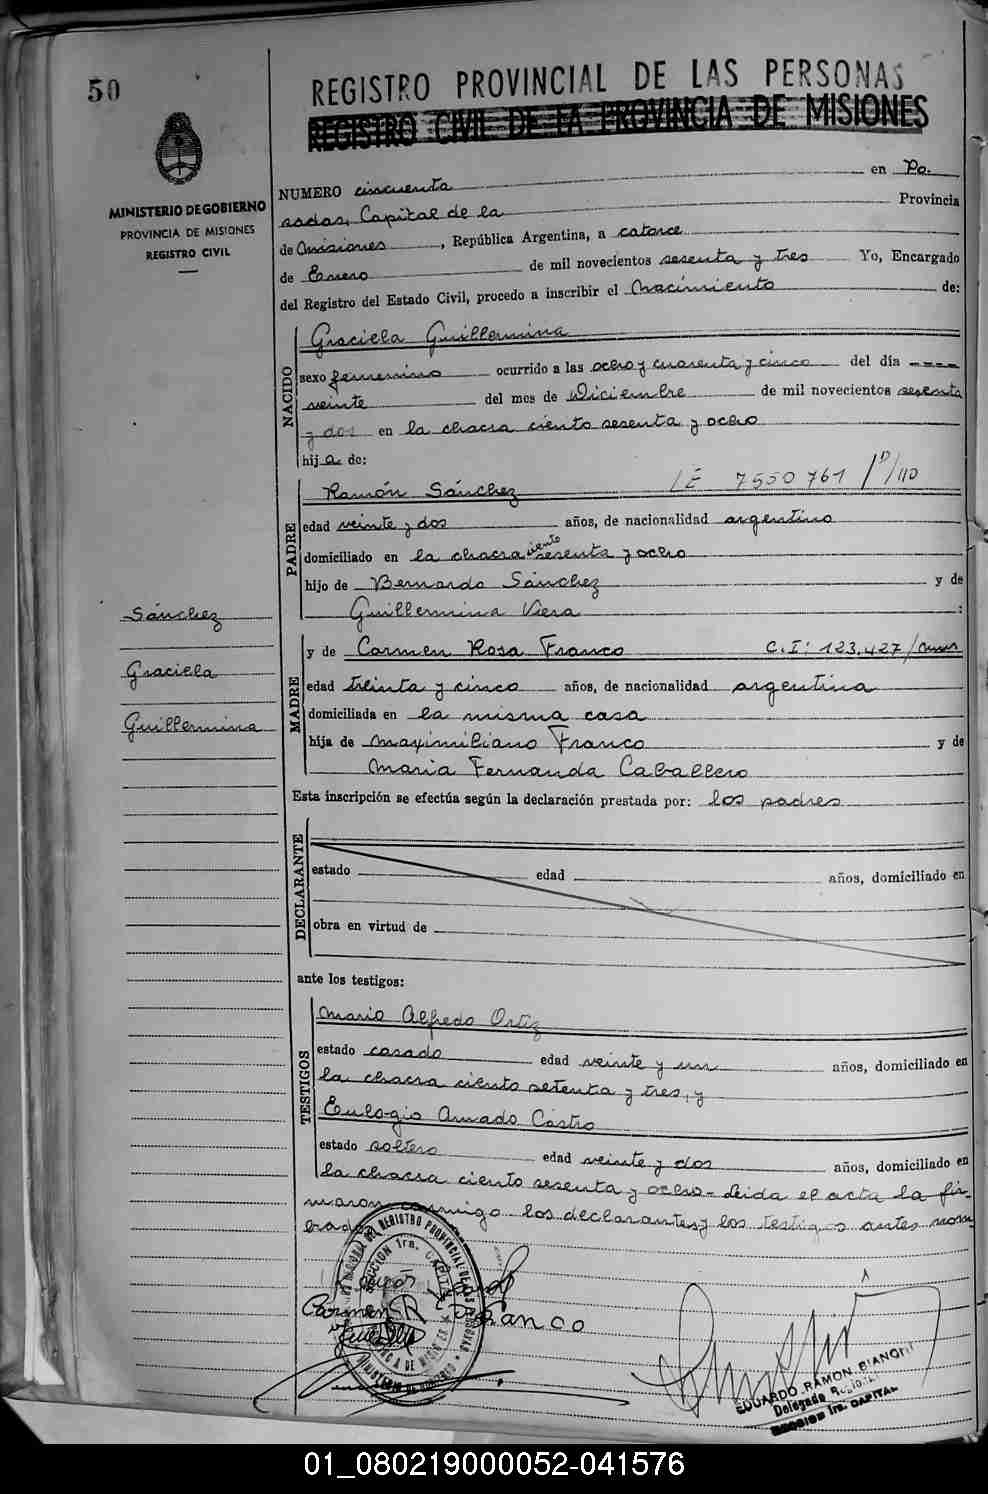 50
REGISTRO PROVINCIAL DE LAS PERSONAS
REGISTRO CIVIL DE LA PROVINCIA DE MISIONES
MINISTERIO DE GOBIERNO
PROVINCIA DE MISIONES
REGISTRO CIVIL
NUMERO cincuenta en Po-
sadas, Capital de la Provincia
de Misiones, República Argentina, a catorce
de Enero de mil novecientos sesenta y tres Yo, Encargado
del Registro del Estado Civil, procedo a inscribir el Nacimiento de:
NACIDO
Graciela Guillermina
sexo femenino ocurrido a las ocho y cuarenta y cinco del día ----
veinte del mes de Diciembre de mil novecientos sesenta
y dos en la chacra ciento sesenta y ocho
hija de:
PADRE
Ramón Sánchez LE 7550761
edad veinte y dos años, de nacionalidad argentino
domiciliado en la chacra ciento sesenta y ocho
hijo de Bernardo Sánchez y de
Guillermina Viera :
Sánchez
Graciela
Guillermina
MADRE
y de Carmen Rosa Franco C.I: 123.427
edad treinta y cinco años, de nacionalidad argentina
domiciliada en la misma casa
hija de Maximiliano Franco y de
Maria Fernanda Caballero
Esta inscripción se efectúa según la declaración prestada por: los padres
DECLARANTE
estado edad años, domiciliado en
obra en virtud de
ante los testigos:
TESTIGOS
Mario Alfredo Ortiz
estado casado edad veinte y un años, domiciliado en
la chacra ciento setenta y tres, y
Eulogio Amado Castro
estado soltero edad veinte y dos años, domiciliado en
la chacra ciento sesenta y ocho- Leida el acta la fir-
maron conmigo los declarantes y los testigos antes nom
brados
Carmen R Franco
EDUARDO RAMON BIANCHI
Delegado Regional
SECCION 1ra. CAPITAL
01_080219000052-041576